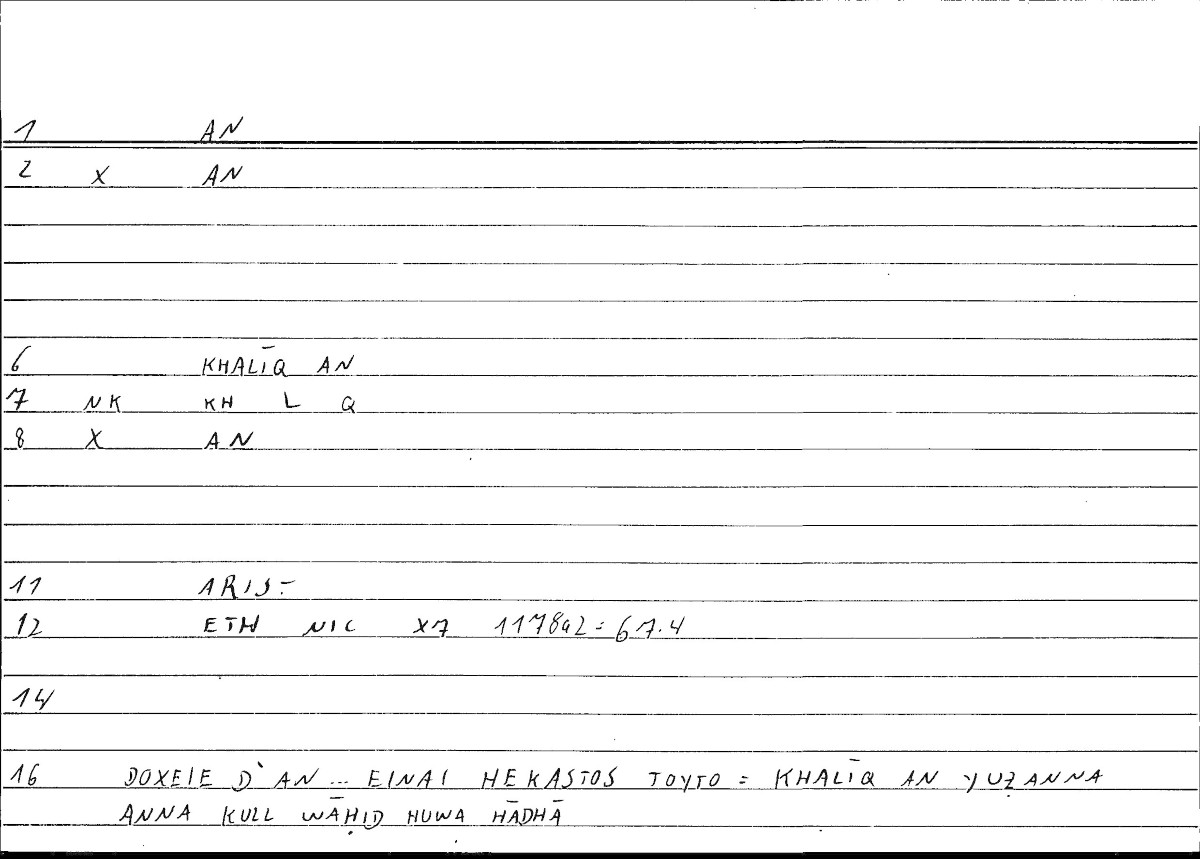 1 AN
2 X AN
6 KHALĪQ AN
7 NK KH L Q
8 X AN
11 ARIST
12 ETH NIC X7 1178a2 = 67.4
14
16 DOXEIE D` AN ... EINAI HEKASTOS TOYTO = KHALĪQ AN YUẒANNA
ANNA KULL WĀḤID HUWA HĀDHĀ